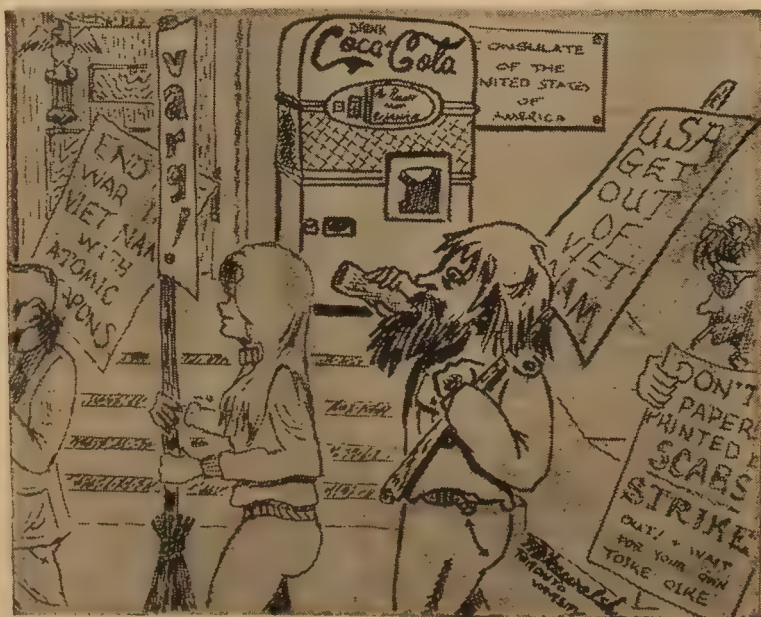 DRINK
Coca-Cola
CONSULATE
OF THE
NITED STATES
OF
AMERICA
END
WAR
VIET NAM
WITH
ATOMIC
APONS
USA
GET
OUT
OF
VIET
AM
DON'T
PAPER
PRINTED B
SCABS
STRIKE
OUT! + WAIT
FOR YOUR OWN
TOIKE OIKE
TORONTO